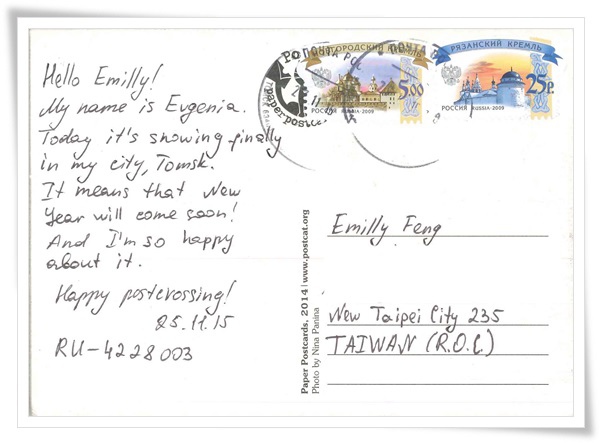 Hello Emilly!
My name is Evgenia.
Today it's snowing finally
in my city, Tomsk.
It means that New
Year will come soon!
And I'm so happy
about it.
Happy postcrossing!
25.11.15
RU-4228003
5.00
РОССИЯ RUSSIA-2009
РЯЗАНСКИЙ КРЕМЛЬ
25р.
РОССИЯ RUSSIA-2009
Paper Postcards, 2014 | www.postcat.org
Photo by Nina Panina
Emilly Feng
New Taipei City 235
TAIWAN (R.O.C)